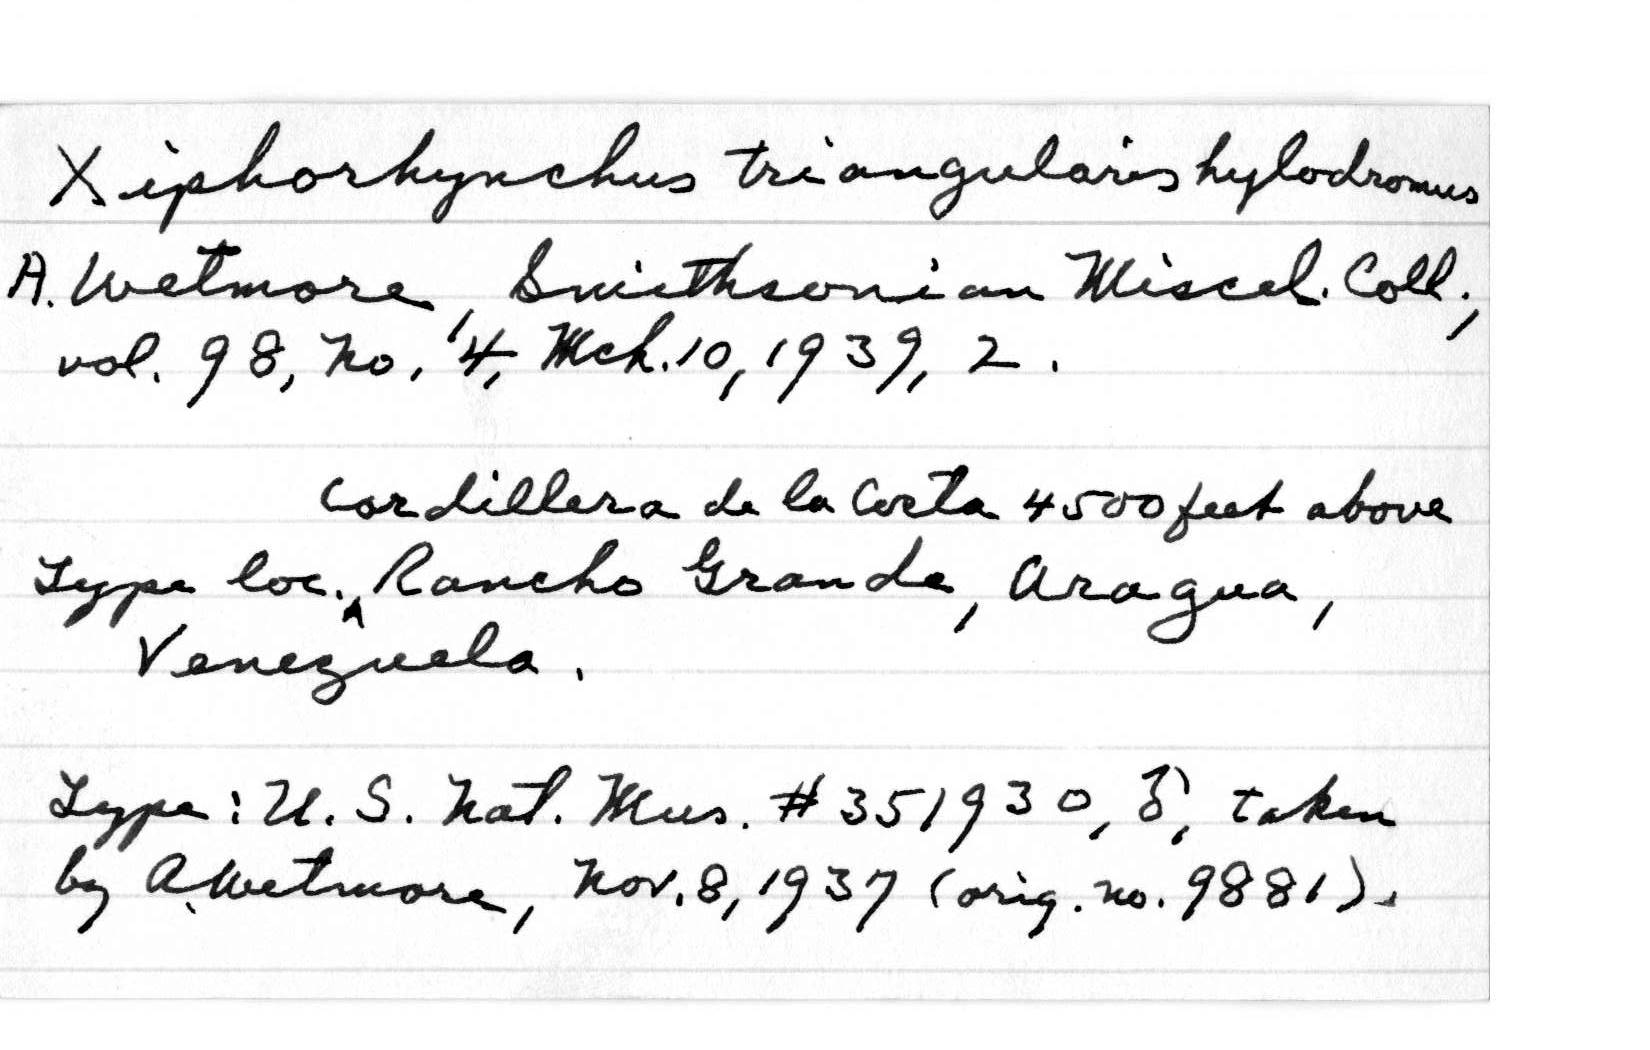 Xiphorhynchus triangularis hylodromus
A. Wetmore, Smithsonian Miscel. Coll.,
vol. 98, no. 4, Mch. 10, 1939, 2.
Cordillera de la Costa 4500 feet above
Type loc. ^ Rancho Grande, Aragua,
Venezuela.
Type: U. S. Nat. Mus. #351930, ♂, taken
by A. Wetmore, Nov. 8, 1937 (orig. no. 9881).